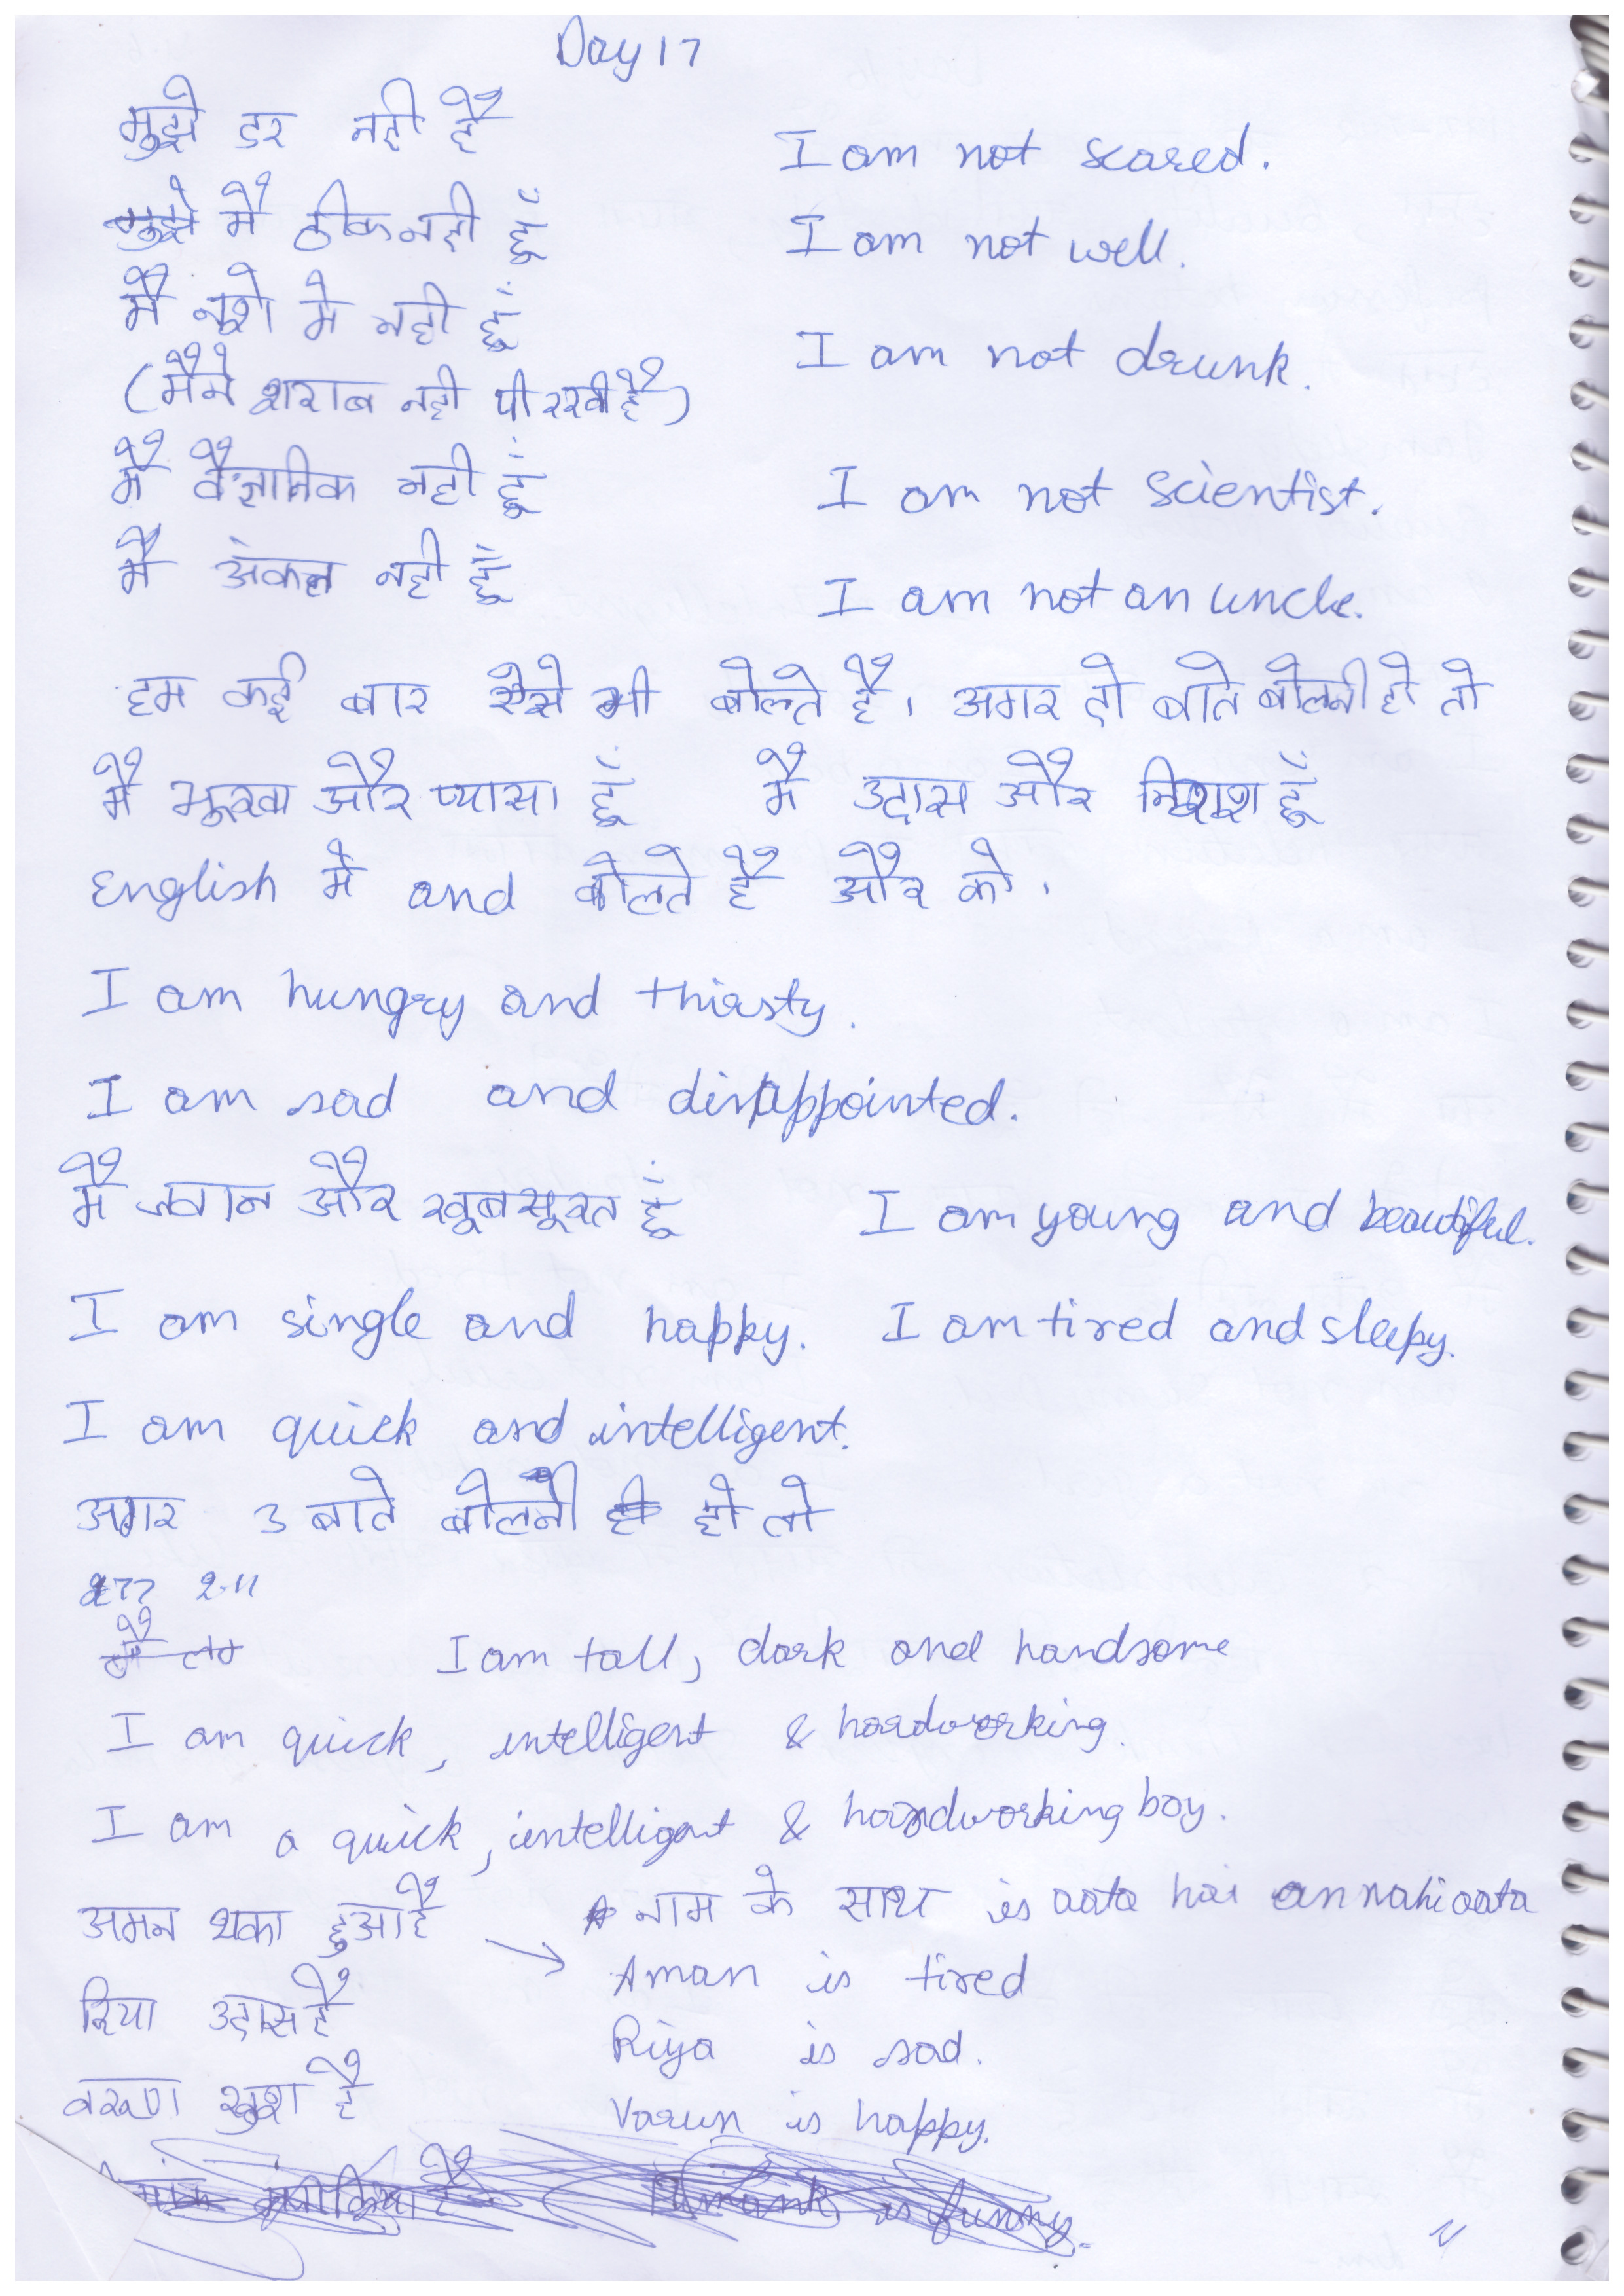 Day 17
मुझे डर नही है I am not scared.
मै ठीक नही हूँ I am not well.
मै नशे मे नही हूँ I am not drunk.
(मैने शराब नही पी रखी है)
मै वैज्ञानिक नही हूँ I am not scientist.
मै अंकल नही हूँ I am not an uncle.
हम कई बार ऐसे भी बोलते है। अगर दो बाते बोलनी हो तो
मै भूखा और प्यासा हूँ मै उदास और निराश हूँ
English मे and बोलते है और को।
I am hungry and thirsty.
I am sad and disappointed.
मै जवान और खूबसूरत हूँ I am young and beautiful.
I am single and happy. I am tired and sleepy.
I am quick and intelligent.
अगर 3 बाते बोलनी हो तो
I am tall, dark and handsome
I am quick, intelligent & hardworking.
I am a quick, intelligent & hardworking boy.
अमन थका हुआ है → नाम के साथ is aata hai an nahi aata
Aman is tired
रिया उदास है Riya is sad.
वरूण खुश है Varun is happy.
is funny.